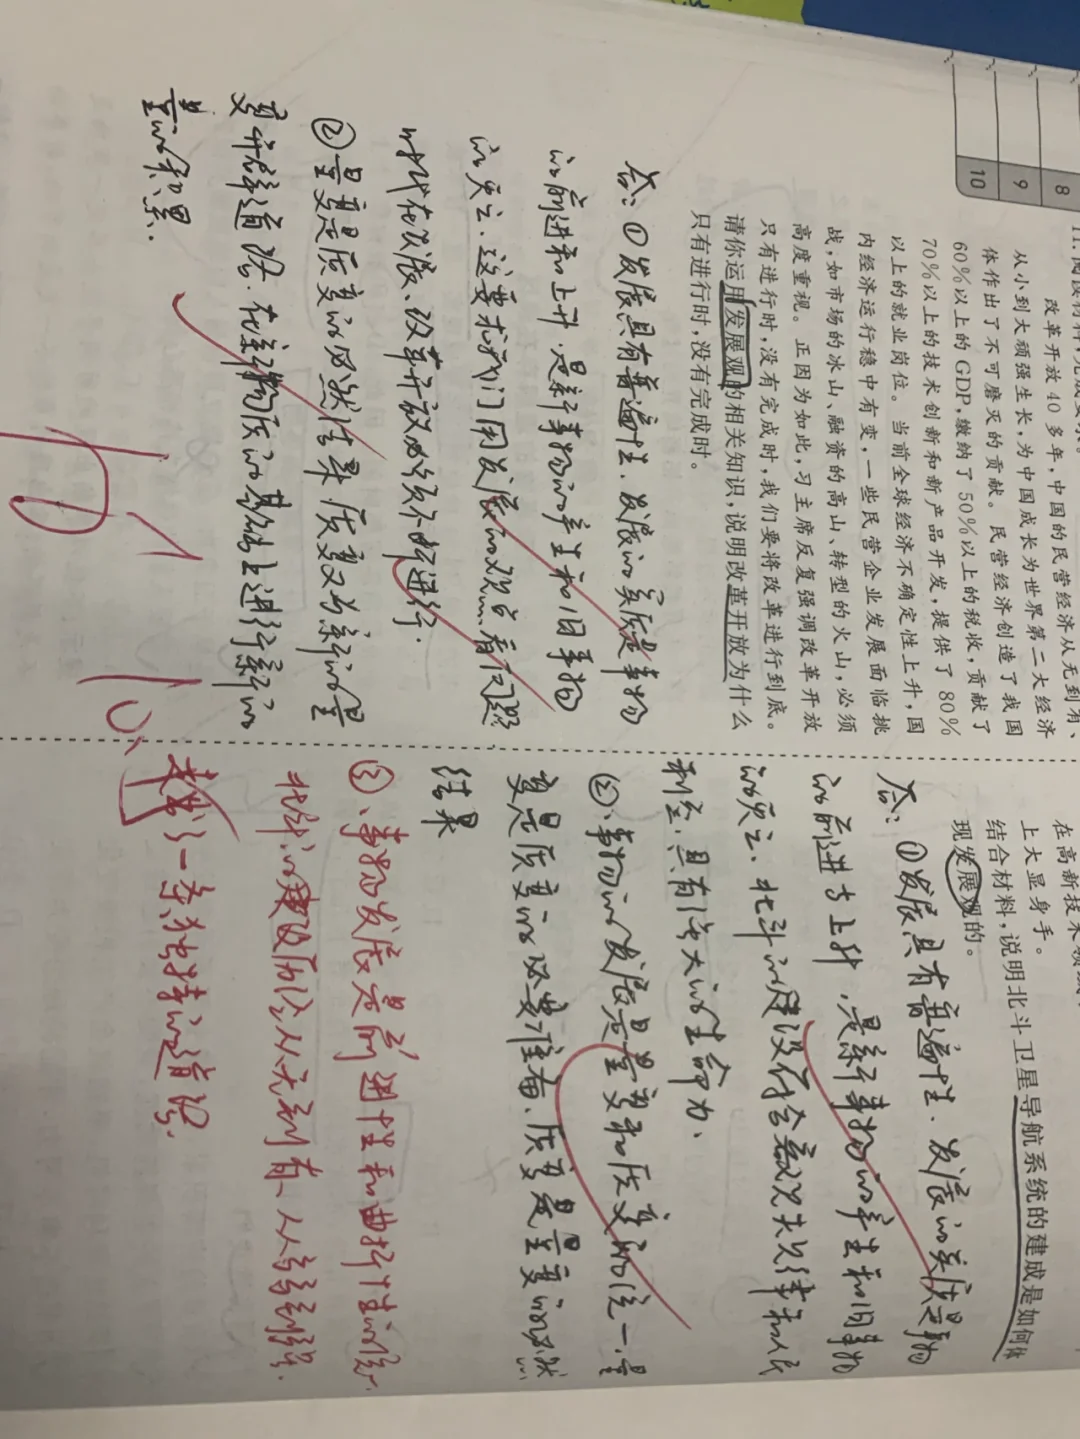 8
9
10
改革开放 40 多年,中国的民营经济从无到有、
从小到大顽强生长,为中国成长为世界第二大经济
体作出了不可磨灭的贡献。民营经济创造了我国
60%以上的 GDP,缴纳了 50%以上的税收,贡献了
70%以上的技术创新和新产品开发,提供了 80%
以上的就业岗位。当前全球经济不确定性上升,国
内经济运行稳中有变,一些民营企业发展面临挑
战,如市场的冰山、融资的高山、转型的火山,必须
高度重视。正因为如此,习主席反复强调改革开放
只有进行时,没有完成时,我们要将改革进行到底。
请你运用发展观的相关知识,说明改革开放为什么
只有进行时,没有完成时。
答:①发展具有普遍性.发展的实质是事物
的前进和上升.是新事物的产生和旧事物
的灭亡.这要求我们用发展的观点看问题
时代在发展、改革开放必须不断进行.
②量变是质变的必然结果 质变又为新的量
变开辟道路.在新物质的基础上进行新的
量的积累.
上大显身手。
结合材料,说明北斗卫星导航系统的建成是如何体
现发展观的。
答:①发展具有普遍性.发展的实质是事物
的前进与上升,是新事物的产生和旧事物
的灭亡.北斗的建设符合客观规律和人民
利益.具有强大的生命力、
②、事物的发展是量变和质变的统一.量
变是质变的必要准备.质变是量变的必然
结果
③、事物发展是前进性和曲折性的统一.
北斗的建设历经从无到有、从弱到强.
走出了一条独特的道路.